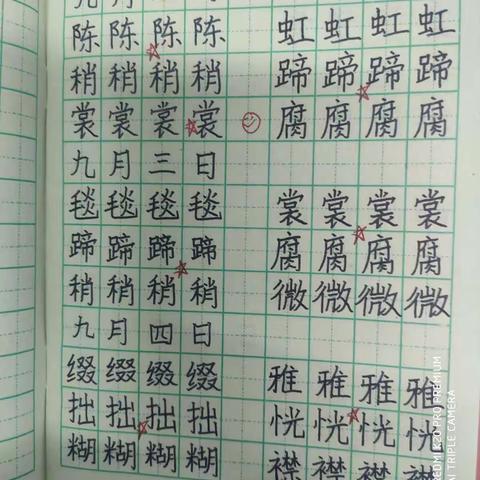 陈陈陈陈
稍稍稍稍
裳裳裳裳
九月三日
毯毯毯毯
蹄蹄蹄蹄
稍稍稍稍
九月四日
缀缀缀缀
拙拙拙拙
糊糊糊糊
虹虹虹虹
蹄蹄蹄蹄
腐腐腐腐
裳裳裳裳
腐腐腐腐
微微微微
雅雅雅雅
恍恍恍恍
襟襟襟襟
REDMI K20 PRO PREMIUM
AI TRIPLE CAMERA